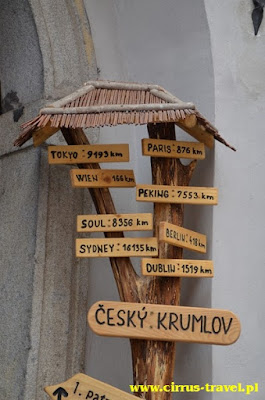 www.cirrus-travel.pl
TOKYO : 9193 km
PARIS : 876 km
WIEN : 166 km
PEKING : 7553 km
SOUL : 8356 km
BERLIN : 418 km
SYDNEY : 16135 km
DUBLIN : 1519 km
ČESKÝ : KRUMLOV
www.cirrus-travel.pl